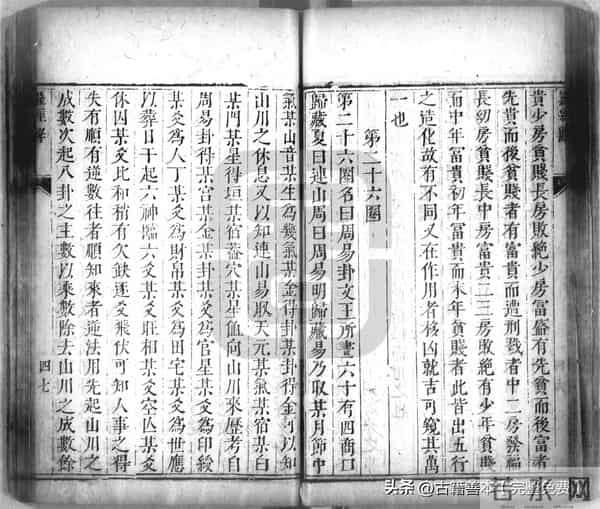 貴少房貧賤長房敗絶少房富盛有先貧而後富者
先貴而後貧賤者有富貴而遭刑戮者中二房發福
長初房貧賤長中房富貴二三房敗絶有少年貧賤
而中年富貴初年富貴而末年貧賤者此皆出五行
之造化故有不同又在作用者移凶就吉可窺其萬
一也
第二十六圖
第二十六圖名曰周易卦文王所畫六十有四商曰
歸藏夏曰連山周曰周易明歸藏易乃取某月節中
氣某山音某生爲幾氣某金得卦某卦得金可以知
山川之休息又以知連山易取天元某氣某宿某白
某門某星得垣某宿蓄穴某星値向山川來歷考自
周易卦得某宮某金某卦某爻爲官星某爻爲印綬
某爻爲人丁某爻爲財帛某爻爲田宅某爻爲世應
以葬日干起六神臨六爻某爻旺相某爻空囚某爻
休囚某爻比和稍有欠缺逐爻飛伏可知人事之得
失有順有逆數往者順知來者逆法用先起山川之
成數次起八卦之主數以乘數除去山川之成數餘
四七
頭条 @古籍善本千完整免費